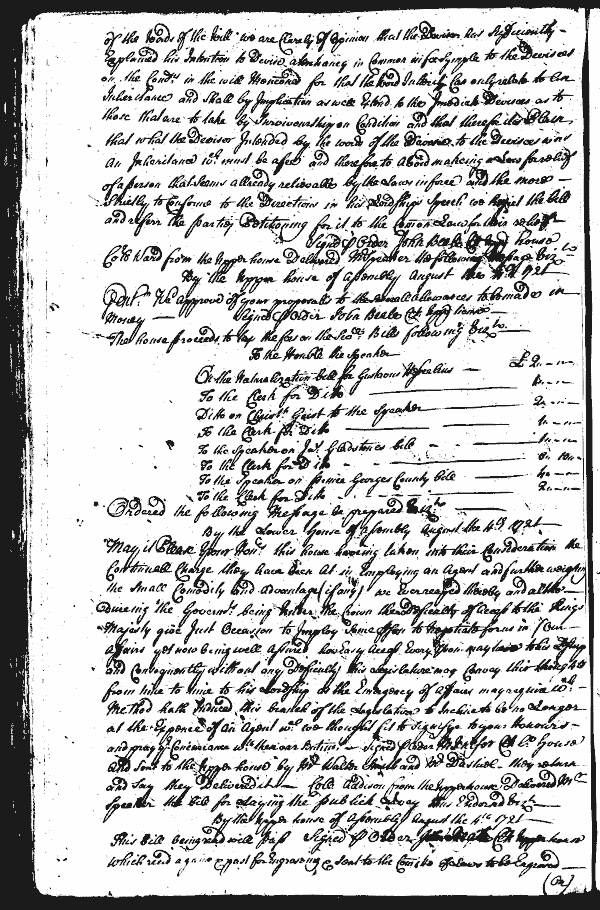 of the Words of the Will we are Clearly of Opinion that the Devisor has Sufficiently
Explained his Intention to Devise a tenancy in Common in fee Symple to the Devisees
on the Condt.s in the will Menconed for that the word Interest Can only relate to an
Inheritance and Shall by Implication as well Extend to the Devisees as to
those that are to take by Survivorship on Condition and that therefore it is Plain
that what the Devisor Intended by the words of the Devise to the Devisees was
An Inheritance wch must be a fee and therefore to Avoid makeing a Law for releif
of a person that Seems allready releivable by the Laws in force and the more
Strictly to Conforme to the Directions in his Lordships Speech we reject the bill
and referr the parties Petitioning for it to the Comon Law for their releif
Signd P Order John Beale Cl upp house
Colo Ward from the upper house Delivers Mr Speaker the following Message Vizt
By the upper house of Assembly August the 4th 1721
Gentn We Approve of your proposals to the allowances to be made in
Money Signd P Order John Beale Cl upp house
The house proceeds to lay the fees on the Bills following Vizt
To the Honble the Speaker
On the Naturalization bill for Gustavus Hesselius £ 2
To the Clerk for Ditto 1
Ditto on Christr Guest to the Speaker 2
To the Clerk for Ditto 1
To the Speaker on Jas Gladstones bill
To the Clerk for Ditto
To the Speaker on Prince Georges County bill
To the Clerk for Ditto 2
Ordered the following Message be prepared Vizt
By the Lower house of Assembly August the 4th 1721
May it Please Your Honrs this house haveing taken into their Consideration the
Continuall Charge they have been At in Employing an Agent and further weighing
the Small Comodity and advantage (if any) we ever reaped thereby and altho
dureing the Governmt being under the Crown the difficulty of Access to the Kings
Majesty give Just Occasion to Imploy Some Person to negotiate for us in Our
affairs yet now being well assured how Easy Access Every Person may have to his Ldship
and Consequently without any Difficulty this Legislature may Convey their thoughts
from time to time to his Lordship as the Emergency of Affairs may require wch
Method hath Induced this branch of the Legislature to Incline to be no Longer
at the Expence of An Agent wch we thought fit to Signifye to your Honours
and pray yr Concurrance wth them Signd P Order Cl Lo House
And Sent to the upper house by Mr Walter Smith and Mr Dashiel they return
and Say they Delivered it Colo Addison from the upper house Delivers Mr
Speaker the bill for Laying the publick Levy thus Endorsed Vizt
By the upper house of Assembly August the 4th 1721
This Bill being read will pass Signed P Order John Beale Cl upper house
which read again & past for Engrossing & Sent to the Comttee of Laws to be Engrossed